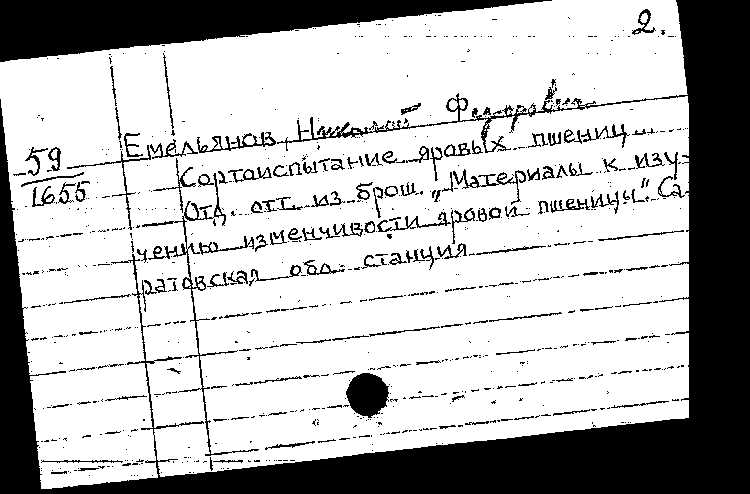 2.
Емельянов, Николай Федорович
59
1655
Сортоиспытание яровых пшениц...
Отд. отт. из брош. „Материалы к изу-
чению изменчивости яровой пшеницы". Са-
ратовская обл. станция